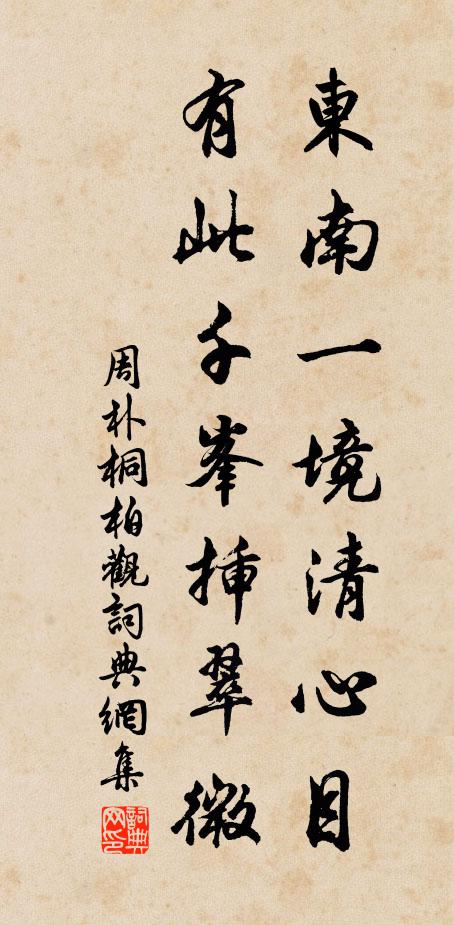 東南一境清心目
有此千峯揷翠微
周朴桐柏觀詞典網集
詞典網印